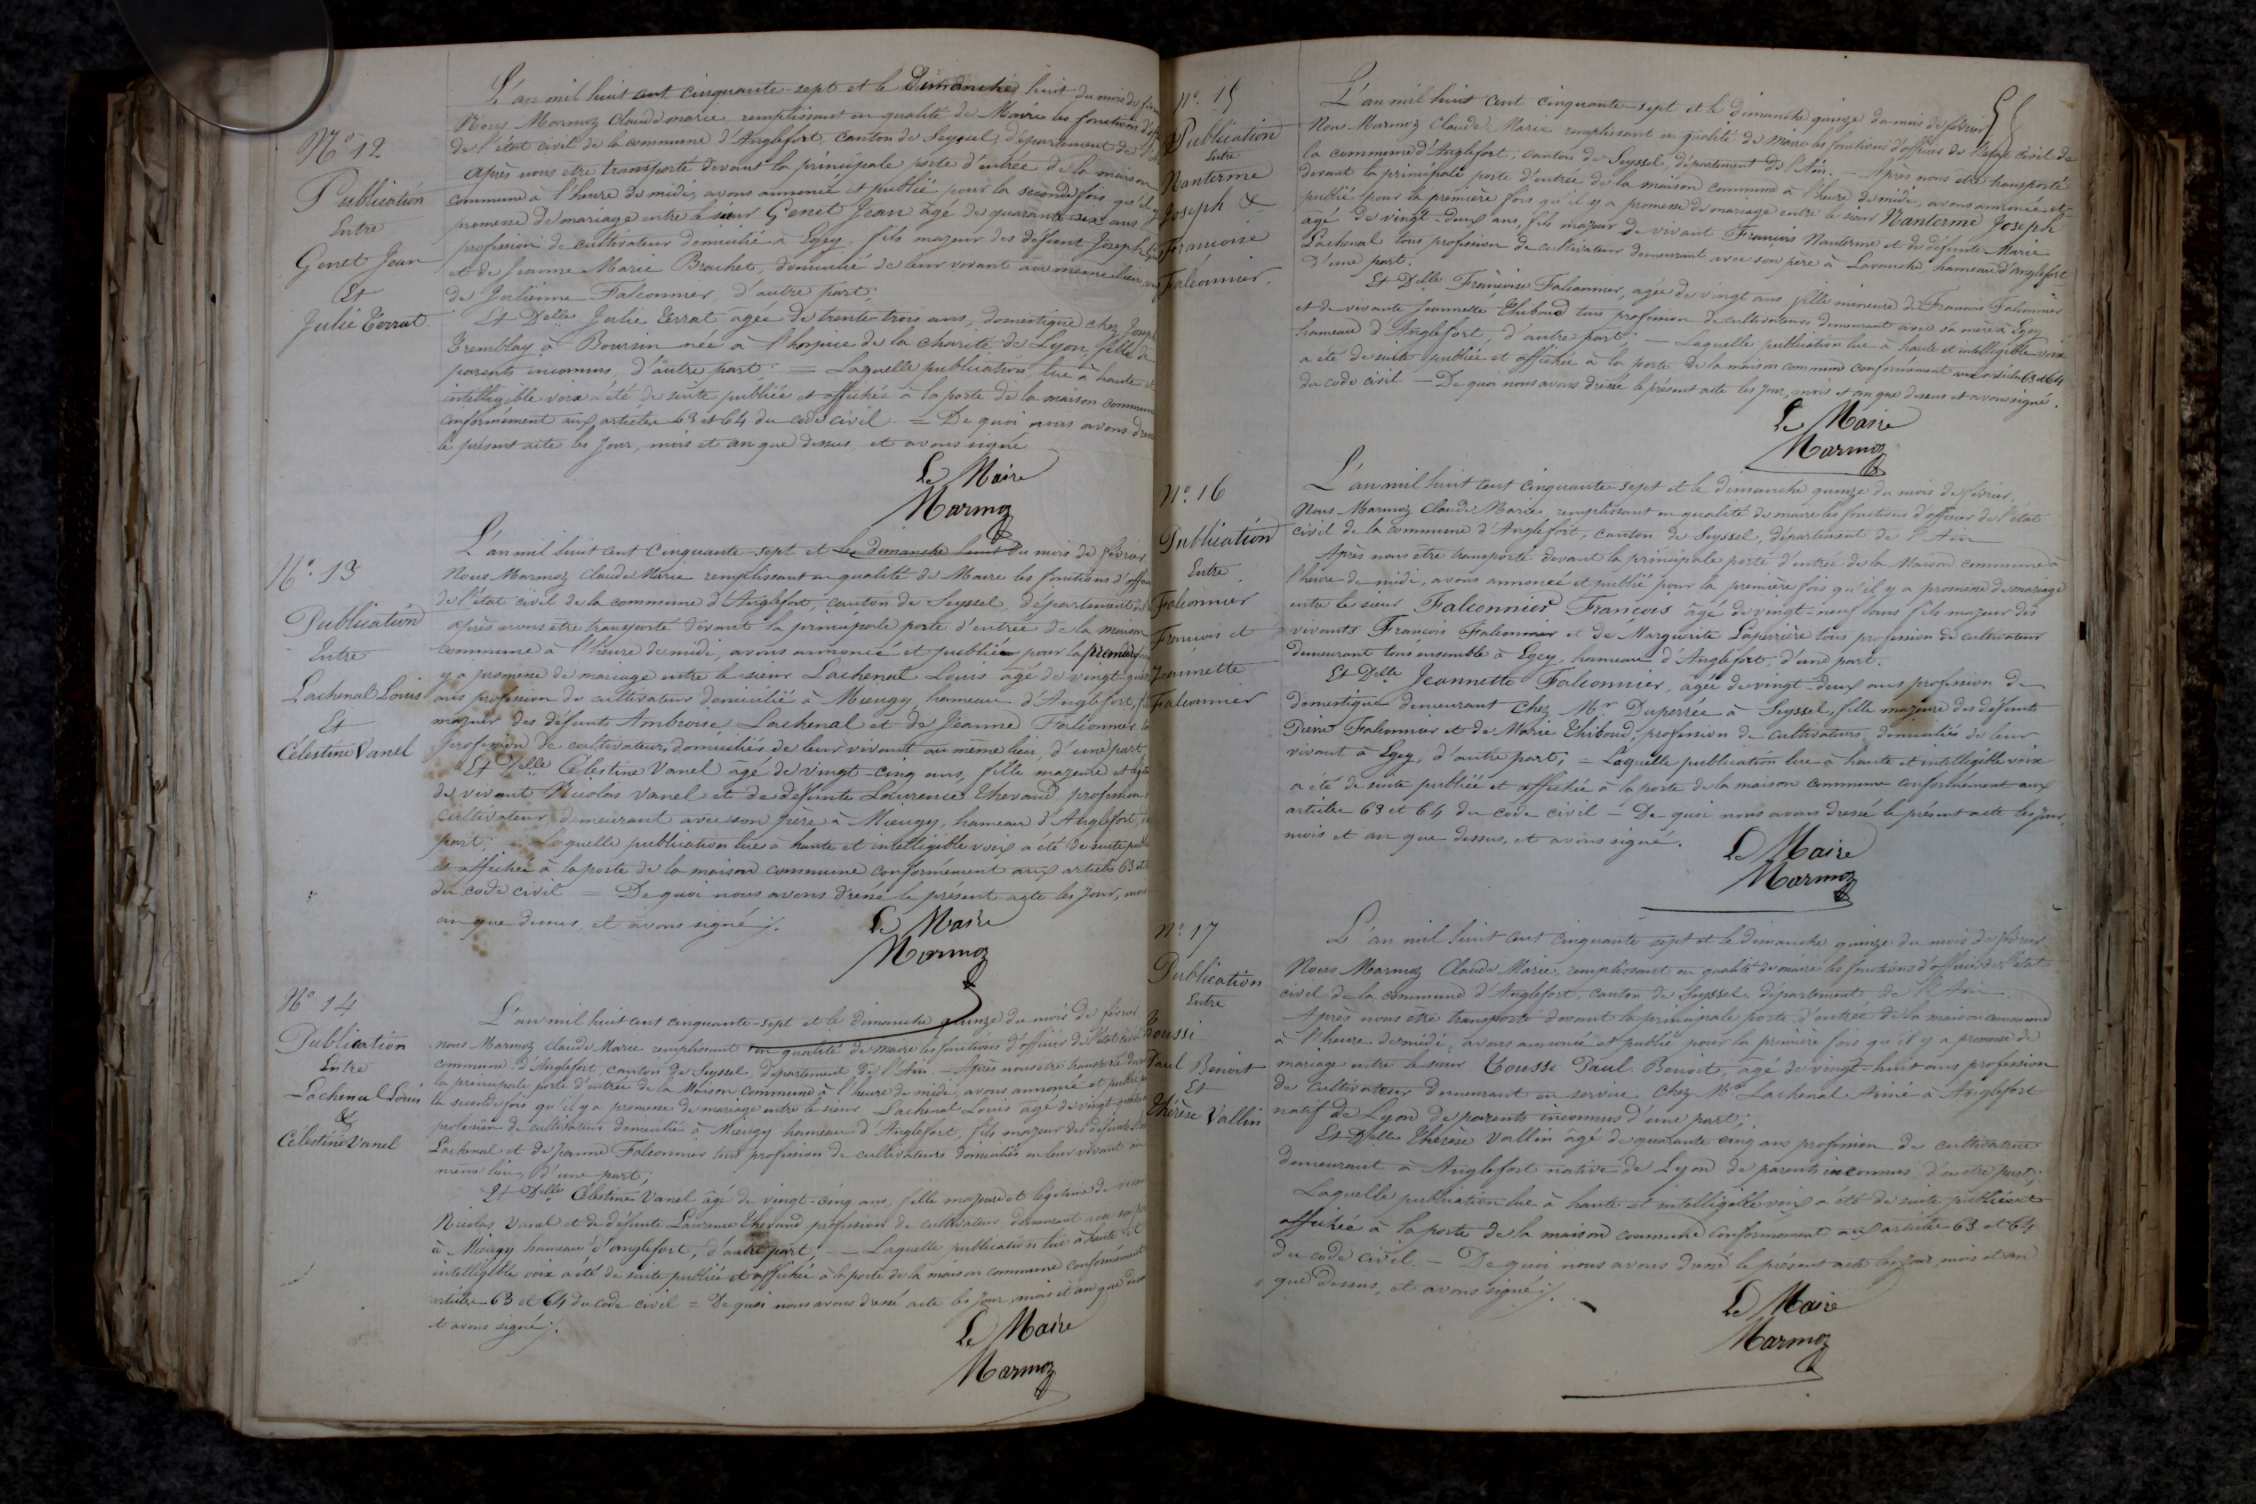 N° 12
Publication
Entre
Genet Jean
Et
Julie Terrat
L'an mil huit cent cinquante-sept et le Dimanche huit du mois de
Nous Marmoz Claude Marie remplissant en qualité de Maire les fonctions
de l'état civil de la commune d'Anglefort, canton de Seyssel, département de
Après nous être transporté devant la principale porte d'entrée de la maison
commune à l'heure de midi, avons annoncé et publié pour la seconde fois qu'il y
promesse de mariage entre le sieur Genet Jean âgé de quarante six ans
profession de cultivateur domicilié à Egey, fils majeur des défunt Joseph
et de Jeanne Marie Brachet, domicilié de leur vivant au même lieu
de Julienne Falconnier, d'autre part;
Et Delle Julie Terrat agée de trente-trois ans, domestique chez
Tremblay à Boursin née à l'hospice de la charité de Lyon, fille
parents inconnus, d'autre part; = Laquelle publication, lue à haute et
intelligible voix a été de suite publiée et affichée à la porte de la maison commune
conformément aux articles 63 et 64 du code civil = De quoi nous avons
le présent acte les Jour, mois et an que dessus, et avons signé
Le Maire
Marmoz
N° 13
Publication
Entre
Lachenal Louis
Et
Célestine Vanel
L'an mil huit cent Cinquante-sept et le dimanche huit du mois de février
Nous Marmoz Claude Marie remplissant en qualité de Maire les fonctions
de l'état civil de la commune d'Anglefort, canton de Seyssel, département
après nous être transporté devant la principale porte d'entrée de la maison
commune à l'heure de midi, avons annoncé et publié pour la première
y a promesse de mariage entre le sieur Lachenal Louis âgé de vingt
ans profession de cultivateur domicilié à Mieugy, hameau d'Anglefort,
majeur des défunts Ambroise Lachenal et de Jeanne Falconnier
profession de cultivateurs domiciliés de leur vivant au même lieu, d'une part
Et Delle Célestine Vanel âgé de vingt-cinq ans, fille majeure et
de vivant Nicolas Vanel et de défunte Laurence Thevand profession
cultivateur demeurant avec son père à Mieugy, hameau d'Anglefort,
part; Laquelle publication lue à haute et intelligible voix a été de suite
et affichée à la porte de la maison commune conformément aux articles 63 et
du code civil = De quoi nous avons dressé le présent acte les Jour,
an que dessus et avons signé ;.
Le Maire
Marmoz
N° 14
Publication
Entre
Lachenal Louis
&
Célestine Vanel
L'an mil huit cent cinquante-sept et le dimanche quinze du mois de février
nous Marmoz Claude Marie remplissant en qualité de maire les fonctions d'officier de l'état civil
commune d'Anglefort, canton de Seyssel, département de l'Ain. — Après nous être transporté
la principale porte d'entrée de la Maison commune à l'heure de midi, avons annoncé et publié
la seconde fois qu'il y a promesse de mariage entre le sieur Lachenal Louis âgé de vingt
profession de cultivateur domicilié à Mieugy hameau d'Anglefort, fils majeur des défunts
Lachenal et de Jeanne Falconnier tous profession de cultivateurs domiciliés en leur vivant au
même lieu, d'une part;
Et Delle Célestine Vanel âgé de vingt-cinq ans, fille majeure et légitime de
Nicolas Vanel et de défunte Laurence Thevand profession de cultivateur demeurant avec
à Mieugy hameau d'anglefort, d'autre part; — Laquelle publication lue à haute et
intelligible voix a été de suite publiée et affichée à la porte de la maison commune conformément
articles 63 et 64 du code civil = De quoi nous avons dressé acte les Jour, mois et an que
et avons signé ;.
Le Maire
Marmoz
55
N° 15
Publication
Entre
Nanterme
Joseph &
Francoise
Falconnier.
L'an mil huit cent cinquante-sept et le dimanche quinze du mois de février
Nous Marmoz Claude Marie remplissant en qualité de maire les fonctions d'officier de l'état civil de
la commune d'Anglefort, canton de Seyssel, département de l'Ain. — Après nous être transporté
devant la principale porte d'entrée de la maison commune à l'heure de midi, avons annoncé et
publié pour la première fois qu'il y a promesse de mariage entre le sieur Nanterme Joseph
âgé de vingt-deux ans, fils majeur de vivant François Nanterme et de défunte Marie
Lachenal tous profession de cultivateur demeurant avec son père à Lavanche, hameau d'anglefort
d'une part.
Et Delle Françoise Falconnier, agée de vingt ans fille mineure de Francois Falconnier
et de vivante Jeannette Thiboud tous profession de cultivateurs demeurant avec sa mère à Egey
hameau d'Anglefort, d'autre part; — Laquelle publication lue à haute et intelligible voix
a été de suite publiée et affichée à la porte de la maison commune conformément aux articles 63 et 64
du code civil — De quoi nous avons dressé le présent acte les Jour, mois et an que dessus et avons signé.
Le Maire
Marmoz
N° 16
Publication
Entre
Falconnier
Francois et
Jeannette
Falconnier
L'an mil huit cent cinquante-sept et le dimanche quinze du mois de février
Nous Marmoz Claude Marie, remplissant en qualité de maire les fonctions d'officier de l'état
civil de la commune d'Anglefort, canton de Seyssel, département de l'Ain
Après nous être transporté devant la principale porte d'entrée de la Maison commune à
l'heure de midi, avons annoncé et publié pour la première fois qu'il y a promesse de mariage
entre le sieur Falconnier François âgé de vingt-neuf ans fils majeur des
vivants François Falconnier et de Marguerite Laperrière tous profession de cultivateur
demeurant tous ensemble à Egey, hameau d'Anglefort, d'une part.
Et Delle Jeannette Falconnier, âgée de vingt-deux ans profession de
domestique demeurant chez Mr Duperrée à Seyssel, fille majeure des défunts
Pierre Falconnier et de Marie Thiboud, profession de cultivateurs, domiciliés de leur
vivant à Egey, d'autre part; = Laquelle publication lue à haute et intelligible voix
a été de suite publiée et affichée à la porte de la maison commune conformément aux
articles 63 et 64 du code civil — De quoi nous avons dressé le présent acte les Jour,
mois et an que dessus, et avons signé.
Le Maire
Marmoz
N° 17
Publication
Entre
Toussi
Paul Benoit
Et
Thérèse Vallin
L'an mil huit cent cinquante sept et le dimanche quinze du mois de février
Nous Marmoz Claude Marie remplissant en qualité de maire les fonctions d'officier de l'état
civil de la commune d'Anglefort, canton de Seyssel, département de l'Ain.
Après nous être transporté devant la principale porte d'entrée de la maison commune
à l'heure de midi, avons annoncé et publié pour la première fois qu'il y a promesse de
mariage entre le sieur Tousse Paul Benoit, âgé de vingt-huit ans profession
de cultivateur demeurant en service chez Mr Lachenal Aimé à Anglefort
natif de Lyon de parents inconnus d'une part;
Et Delle Thérèse Vallin âgé de quarante cinq ans profession de cultivatrice
demeurant à Anglefort native de Lyon de parents inconnus, d'autre part;
Laquelle publication lue à haute et intelligible voix a été de suite publiée et
affichée à la porte de la maison commune conformément aux articles 63 et 64
du code civil. — De quoi nous avons dressé le présent acte les Jour, mois et an
que dessus, et avons signé ;.
Le Maire
Marmoz